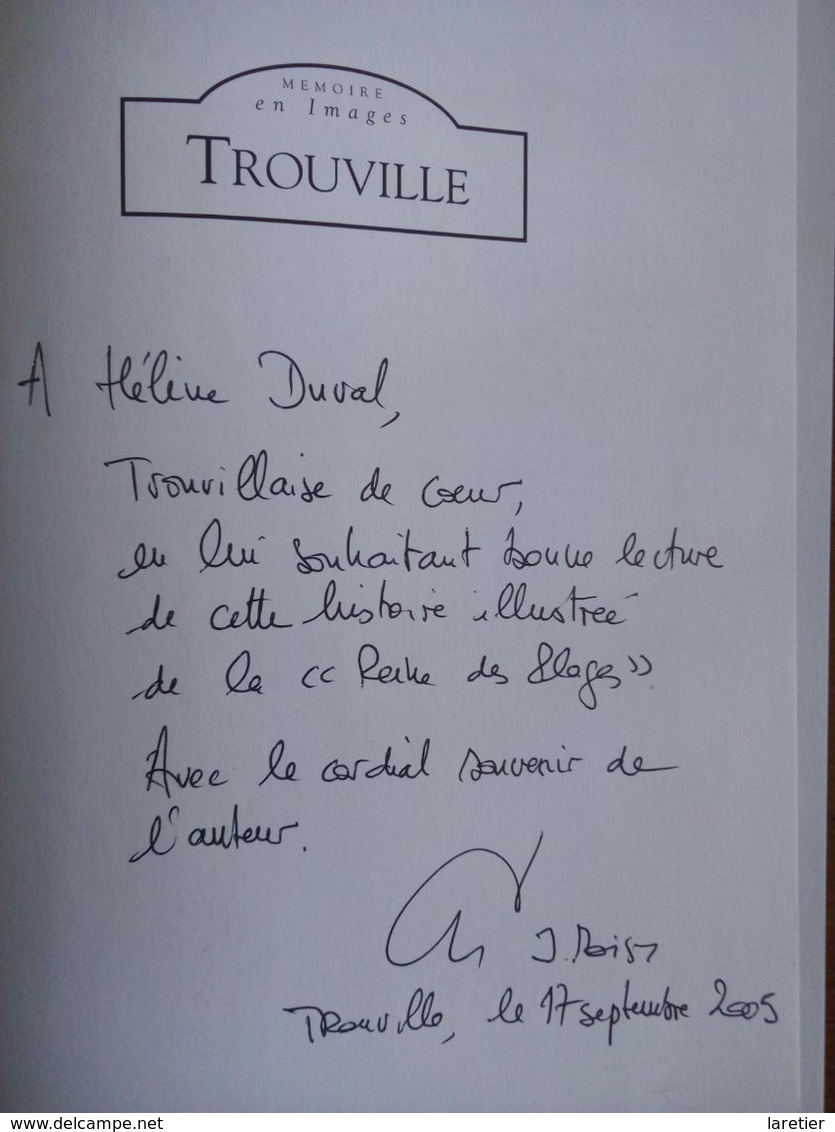 MEMOIRE
en Images
TROUVILLE
A Hélène Duval,
Trouvillaise de coeur,
en lui souhaitant bonne lecture
de cette histoire illustrée
de la << Reine des Plages >>
Avec le cordial souvenir de
l'auteur.
J.
Trouville, le 17 septembre 2005
www.delcampe.net
laretier